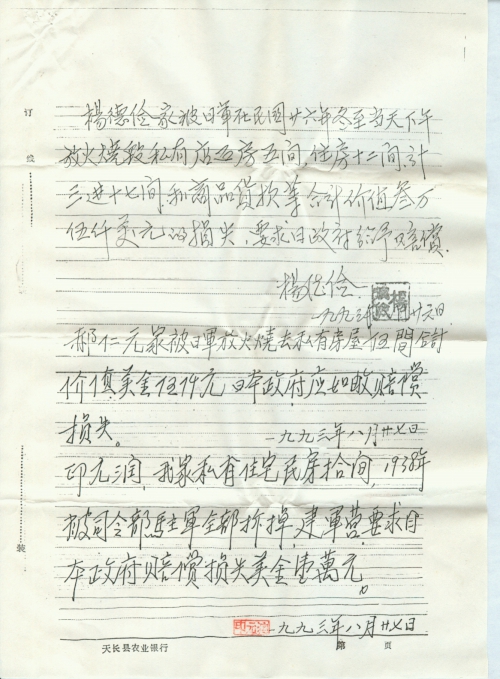 楊德俭家被日軍在民国廿六年冬至当天下午
放火燒毁私有店面房五间,住房十二间,计
三进十七间,和商品貨款等合计价值叁万
伍仟美元的损失,要求日政府给予赔償.
楊德俭
一九九三年 廿六日
郝仁元家被日軍放火燒去私有房屋伍間合計
价值美金伍仟元 日本政府应如数赔償
损失。 一九九三年八月廿七日
印元润,我家私有住宅民房拾间,1938年
被司令部駐軍全部拆掉,建軍营,要求日
本政府赔償损失美金壹萬元。
一九九三年八月廿七日
订
线
装
天长县农业银行 第 页